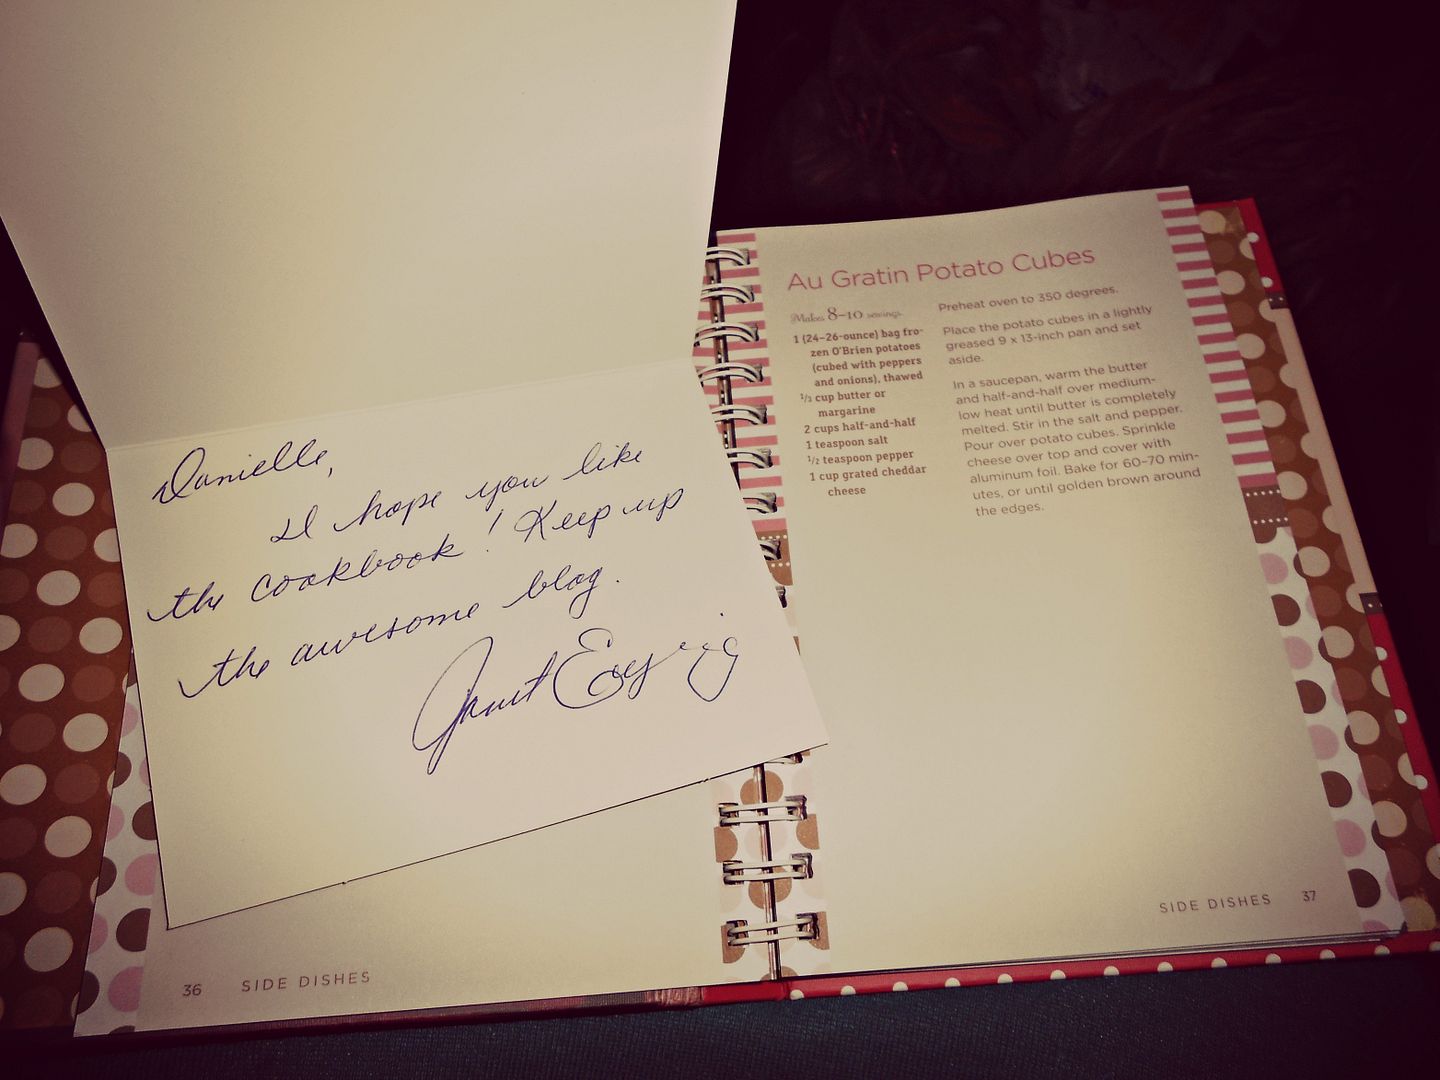 Danielle,
I hope you like
the cookbook! Keep up
the awesome blog.
Janet Eyring
36 SIDE DISHES
Au Gratin Potato Cubes
Makes 8–10 servings
1 (24–26-ounce) bag fro-
zen O'Brien potatoes
(cubed with peppers
and onions), thawed
1/3 cup butter or
margarine
2 cups half-and-half
1 teaspoon salt
1/2 teaspoon pepper
1 cup grated cheddar
cheese
Preheat oven to 350 degrees.
Place the potato cubes in a lightly
greased 9 x 13-inch pan and set
aside.
In a saucepan, warm the butter
and half-and-half over medium-
low heat until butter is completely
melted. Stir in the salt and pepper.
Pour over potato cubes. Sprinkle
cheese over top and cover with
aluminum foil. Bake for 60–70 min-
utes, or until golden brown around
the edges.
SIDE DISHES 37